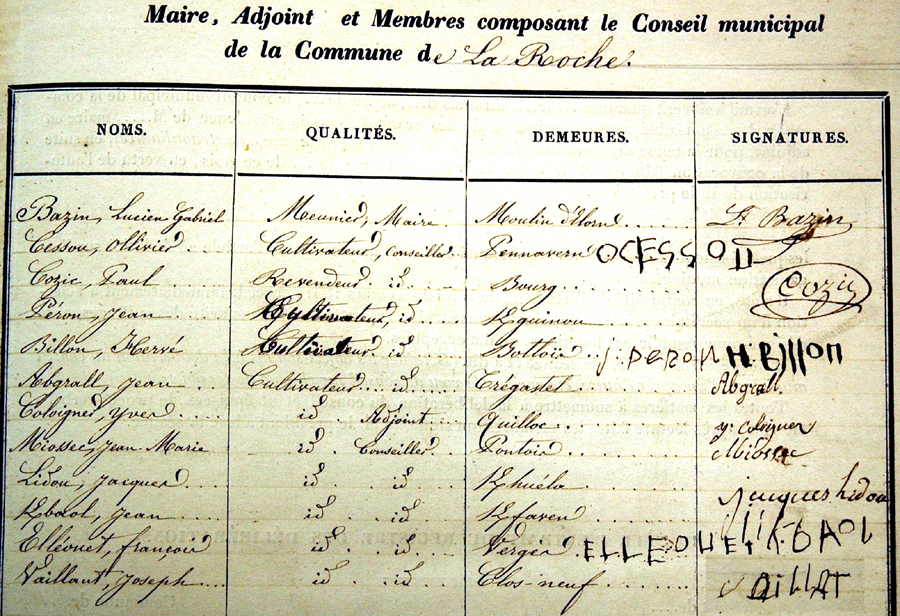 Maire, Adjoint et Membres composant le Conseil municipal
de la Commune de La Roche.
NOMS. QUALITÉS. DEMEURES. SIGNATURES.
Bazin, Lucien Gabriel Meunier, Maire Moulin d'Elorn Bazin
Cessou, Ollivier Cultivateur, Conseiller Pennavern OCESSOU
Cozic, Paul Revendeur id Bourg Cozic
Péron, Jean Cultivateur, id Kguinou
Billon, Hervé Cultivateur id Bottoir J. PERON H. BILLON
Abgrall, Jean Cultivateur id Trégastel Abgrall
Coloigner, Yves id Adjoint Quilloc y. cologuer
Miossec, Jean Marie id Conseiller Pontoir Miossec
Lidou, Jacques id id Khuéla jacques lidou
Kbaol, Jean id id Kfaven
Elléouet, françois id id Verger ELLEOUET
Vaillant, Joseph id id Clos-neuf